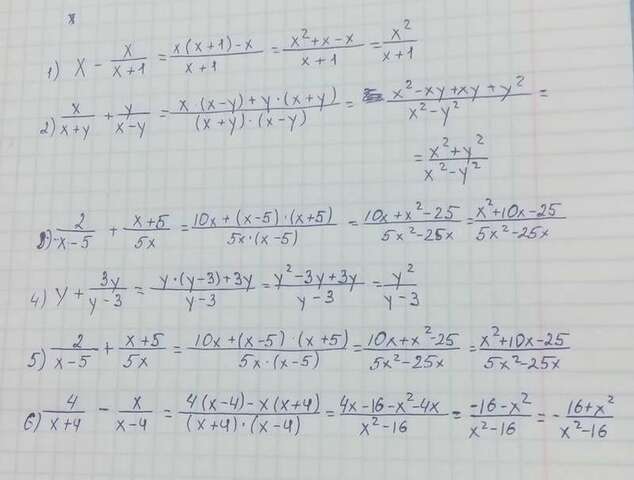 1) x - x/(x+1) = (x(x+1)-x)/(x+1) = (x²+x-x)/(x+1) = x²/(x+1)
2) x/(x+y) + y/(x-y) = (x·(x-y)+y·(x+y))/((x+y)·(x-y)) = (x²-xy+xy+y²)/(x²-y²) =
= (x²+y²)/(x²-y²)
3) 2/(x-5) + (x+5)/5x = (10x+(x-5)·(x+5))/(5x·(x-5)) = (10x+x²-25)/(5x²-25x) = (x²+10x-25)/(5x²-25x)
4) y + 3y/(y-3) = (y·(y-3)+3y)/(y-3) = (y²-3y+3y)/(y-3) = y²/(y-3)
5) 2/(x-5) + (x+5)/5x = (10x+(x-5)·(x+5))/(5x·(x-5)) = (10x+x²-25)/(5x²-25x) = (x²+10x-25)/(5x²-25x)
6) 4/(x+4) - x/(x-4) = (4(x-4)-x(x+4))/((x+4)·(x-4)) = (4x-16-x²-4x)/(x²-16) = (-16-x²)/(x²-16) = -(16+x²)/(x²-16)